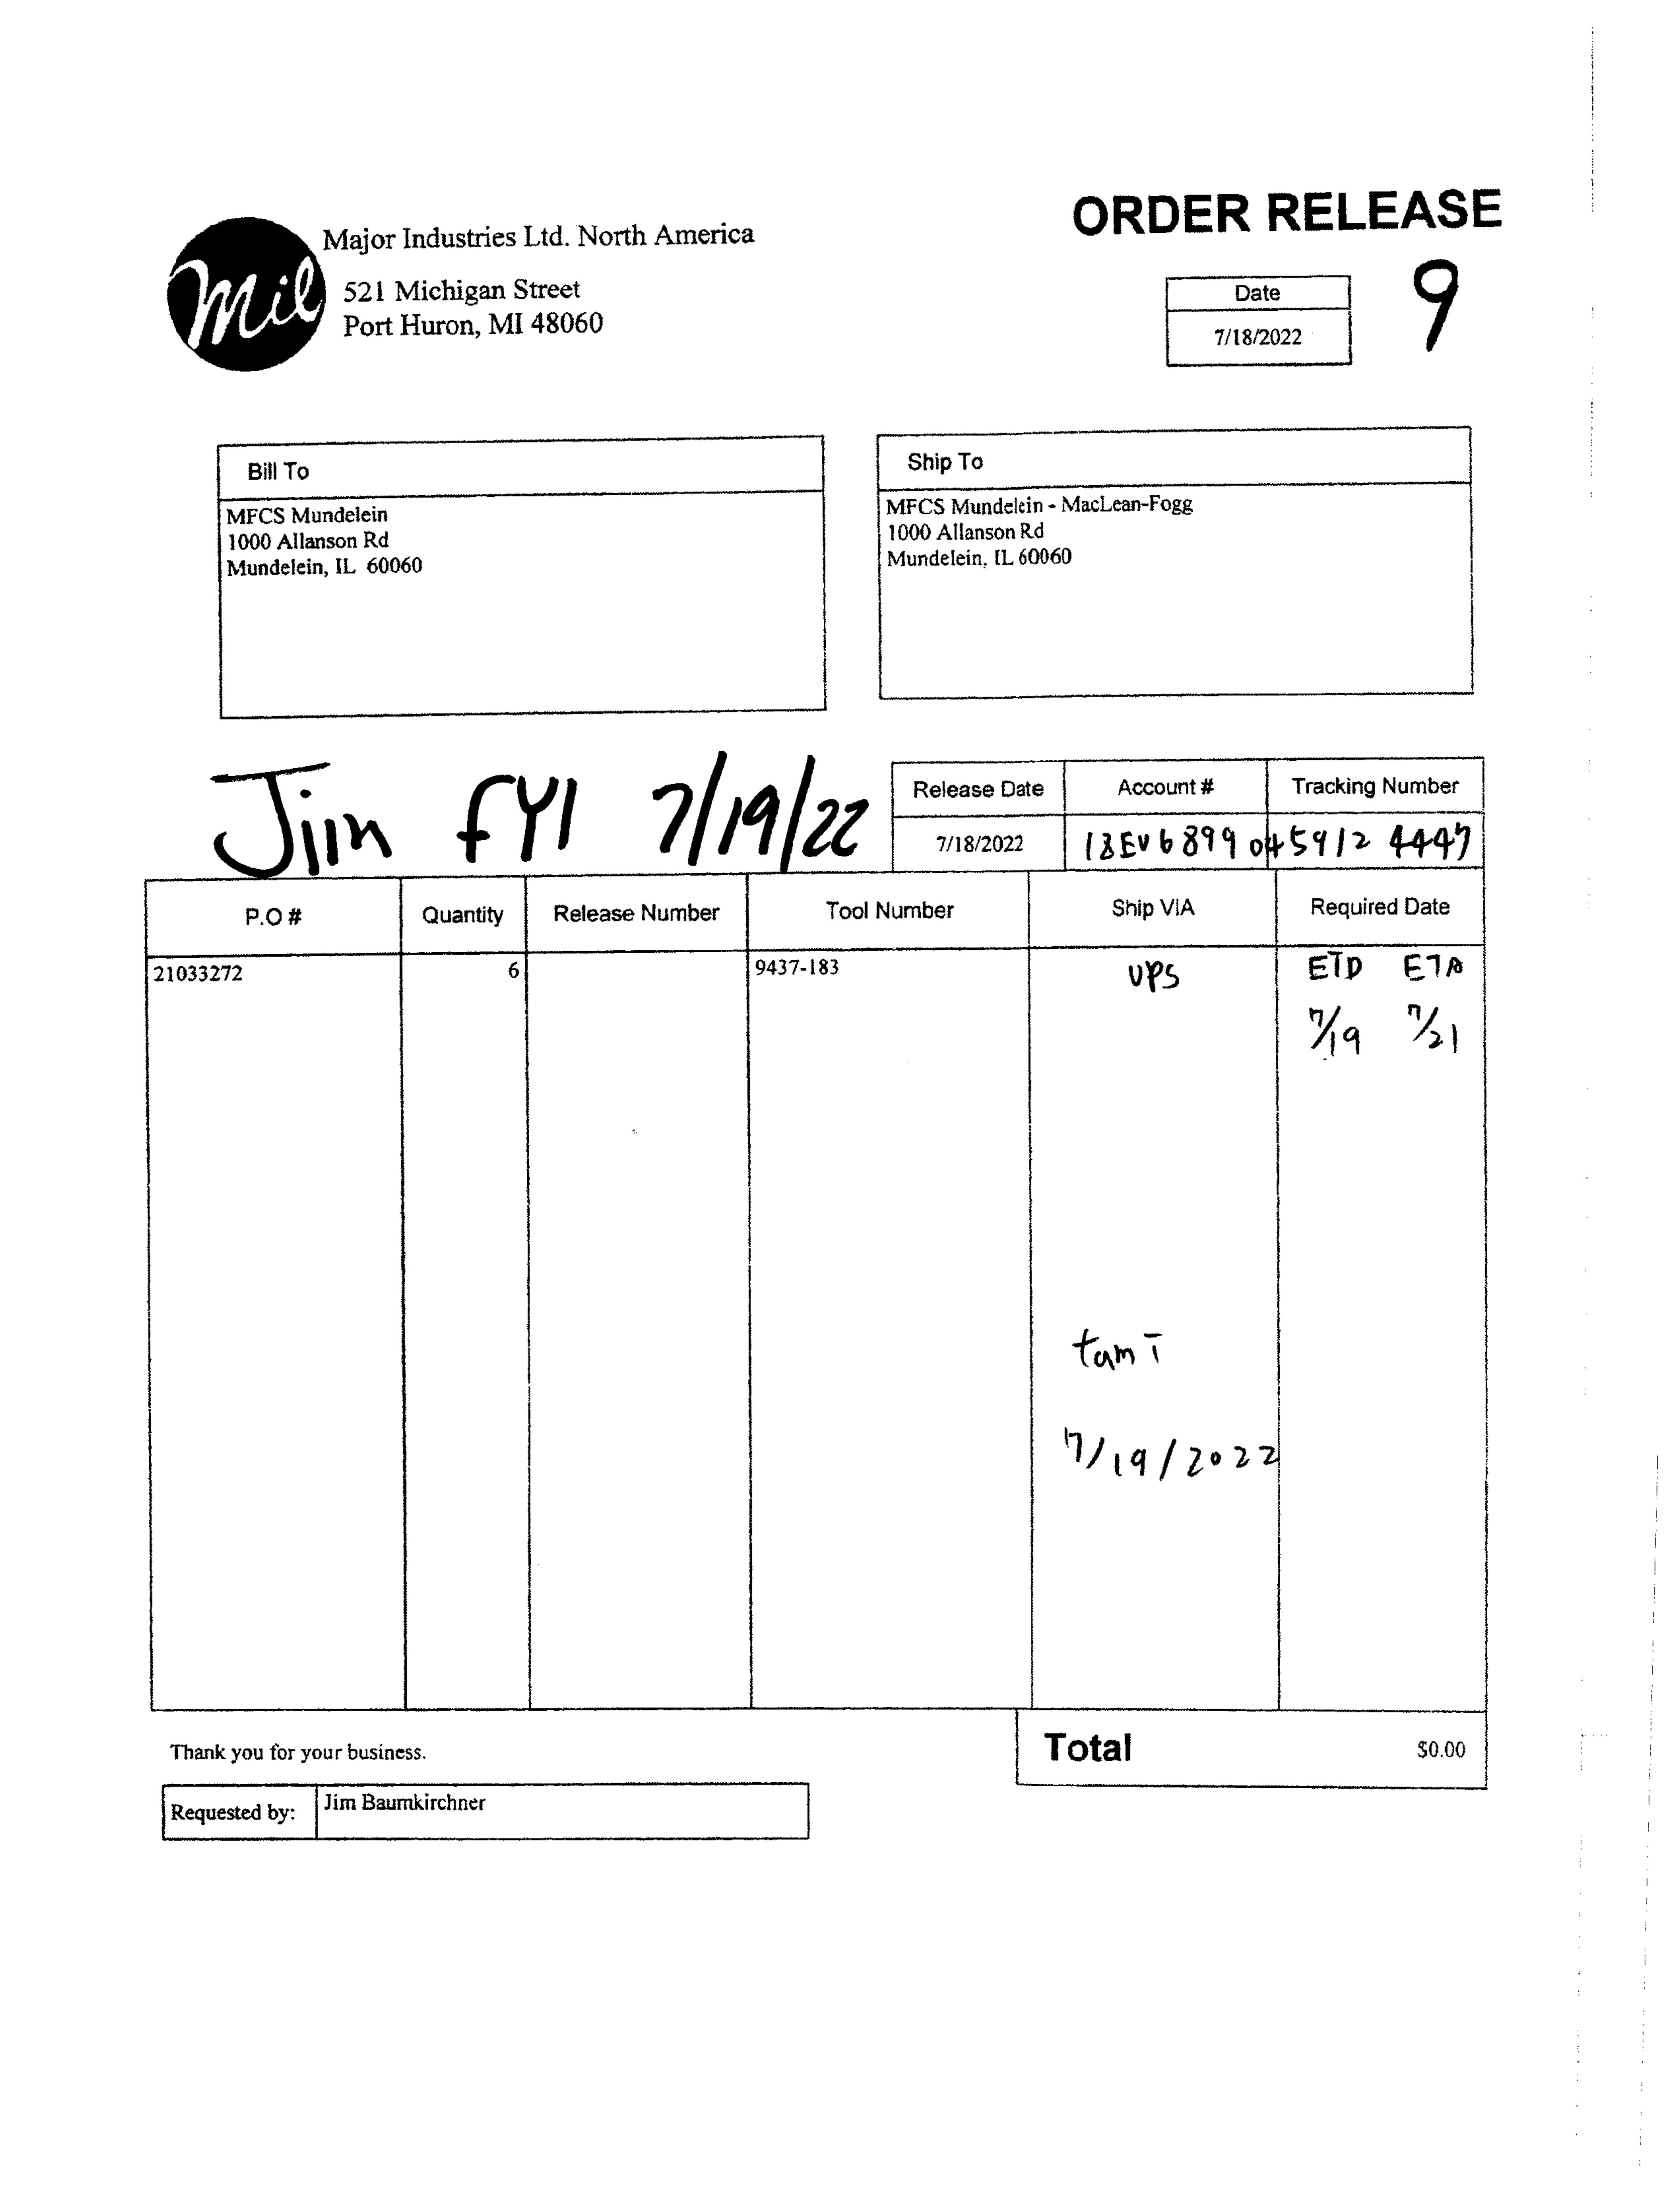 ORDER RELEASE
Mil
Major Industries Ltd. North America
521 Michigan Street
Port Huron, MI 48060
Date
7/18/2022
9
Bill To
MFCS Mundelein
1000 Allanson Rd
Mundelein, IL 60060
Ship To
MFCS Mundelein - MacLean-Fogg
1000 Allanson Rd
Mundelein, IL 60060
Jim FYI 7/19/22
Release Date Account # Tracking Number
7/18/2022 1ZEV6899 045912 4447
P.O # Quantity Release Number Tool Number Ship VIA Required Date
21033272 6 9437-183 UPS ETD ETA
7/19 7/21
tamī
7/19/2022
Thank you for your business.
Total $0.00
Requested by: Jim Baumkirchner